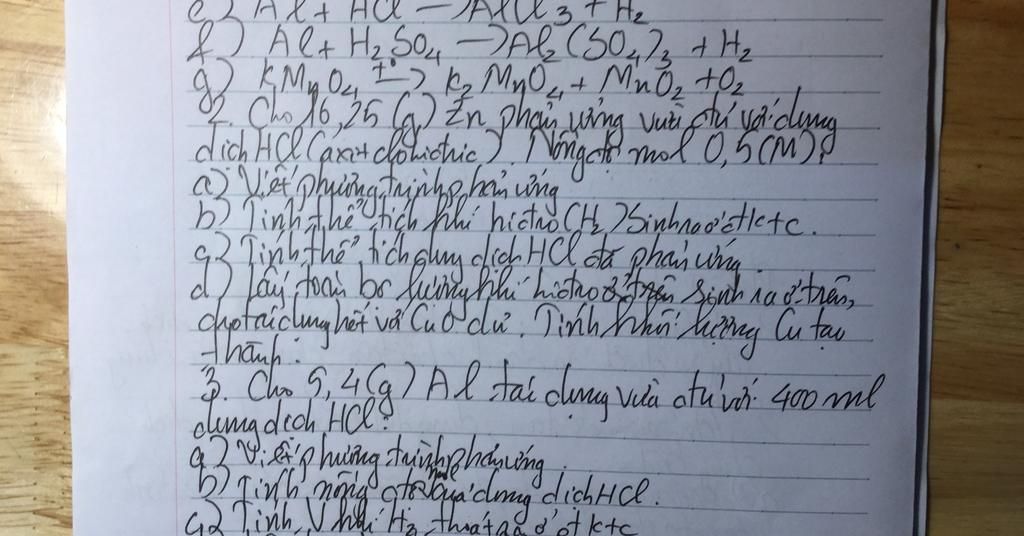 e) Al + HCl → AlCl3 + H2
f) Al + H2SO4 → Al2(SO4)3 + H2
g) KMnO4 t° → K2MnO4 + MnO2 + O2
2. Cho 16,25 (g) Zn phản ứng vừa đủ với dung
dịch HCl (axit clohiđric). Nồng độ mol 0,5 (M).
a) Viết phương trình phản ứng
b) Tính thể tích khí hiđro (H2) sinh ra ở đktc.
c) Tính thể tích dung dịch HCl đã phản ứng.
d) Lấy toàn bộ lượng khí hiđro ở trên sinh ra ở trên,
cho tác dụng hết với CuO dư. Tính khối lượng Cu tạo
thành.
3. Cho 5,4 (g) Al tác dụng vừa đủ với 400 ml
dung dịch HCl.
a) Viết phương trình phản ứng.
b) Tính nồng độ mol của dung dịch HCl.
c) Tính V khí H2 thoát ra ở đktc